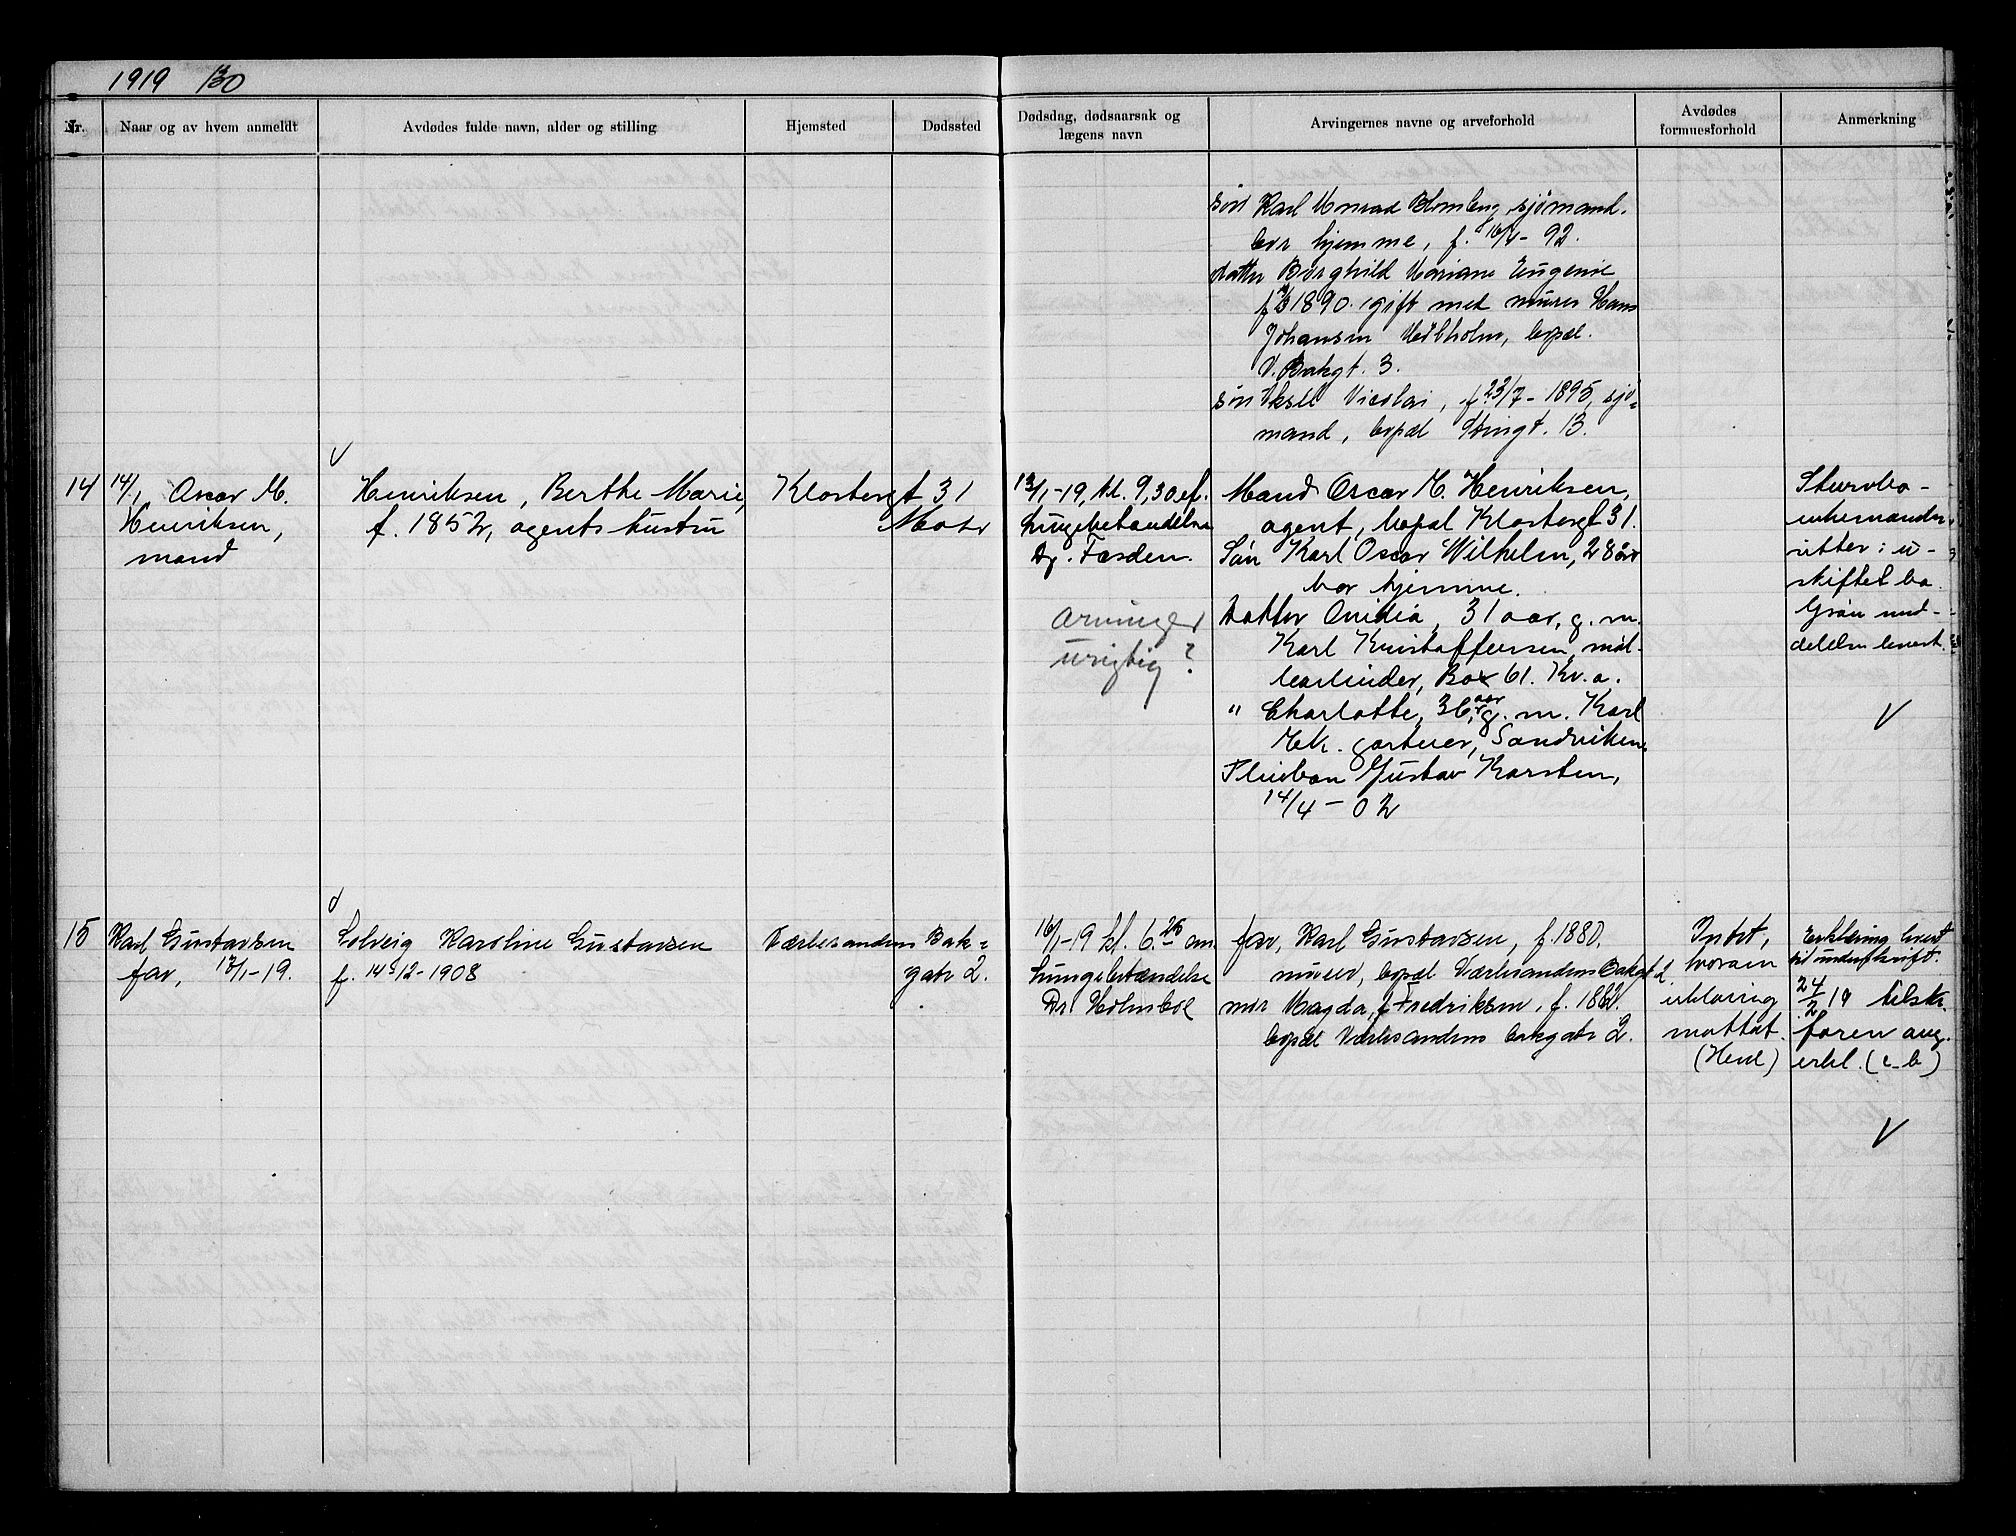 1919
Nr.
Naar og av hvem anmeldt
Avdødes fulde navn, alder og stilling
Hjemsted
Dødssted
Dødsdag, dødsaarsak og
lægens navn
Arvingernes navne og arveforhold
Avdødes
formuesforhold
Anmerkning
søn Karl sjømand.
bor hjemme, f. 92.
datter Borghild Mariane Eugenie
1890. gift med murer Hans
Johansen bopæl.
V. Bakgt. 3.
søn f. 23/7 - 1895, sjø-
mand, bopæl 13.
14
14/1 Oscar M.
Henriksen,
mand
Henriksen, Berthe Marie,
f. 1852, agents hustru
Klostergt 31
Moss
13/1-19, kl. 9,30 ef.
Lungebetændelse
Dr.
Arvinger
urigtig?
Mand Oscar M. Henriksen,
agent, bopæl Klostergt 31.
Søn Karl Oscar Wilhelm, 28 år
bor hjemme.
Datter Ovidia, 31 aar, g. m.
Karl Kristoffersen, møl-
learbeider, Box 61. Kr.a.
" Charlotte, 36 aar, g. m. Karl
Ek. gartner, Sandviken.
Pleiebarn Gustav Karsten,
14/4 - 02
uskiftet bo.
15
Karl Gustavsen
far, 17/1-19.
Solveig Karoline Gustavsen
f. 14-12-1908
Værlesandens Bak-
gate 2.
16/1-19 kl. 6.
Lungebetændelse
Dr Holmboe
far, Karl Gustavsen, f. 1880.
murer, bopæl Værlesandens Bakgt 2.
mor Magda, f. Fredriksen, f.
bopæl Værlesandens bakgate 2.
Intet,
hvorom
erklæring
mottat.
Erklæring
til underskrift.
24/2 19 tilsk.
faren ang.
erkl.